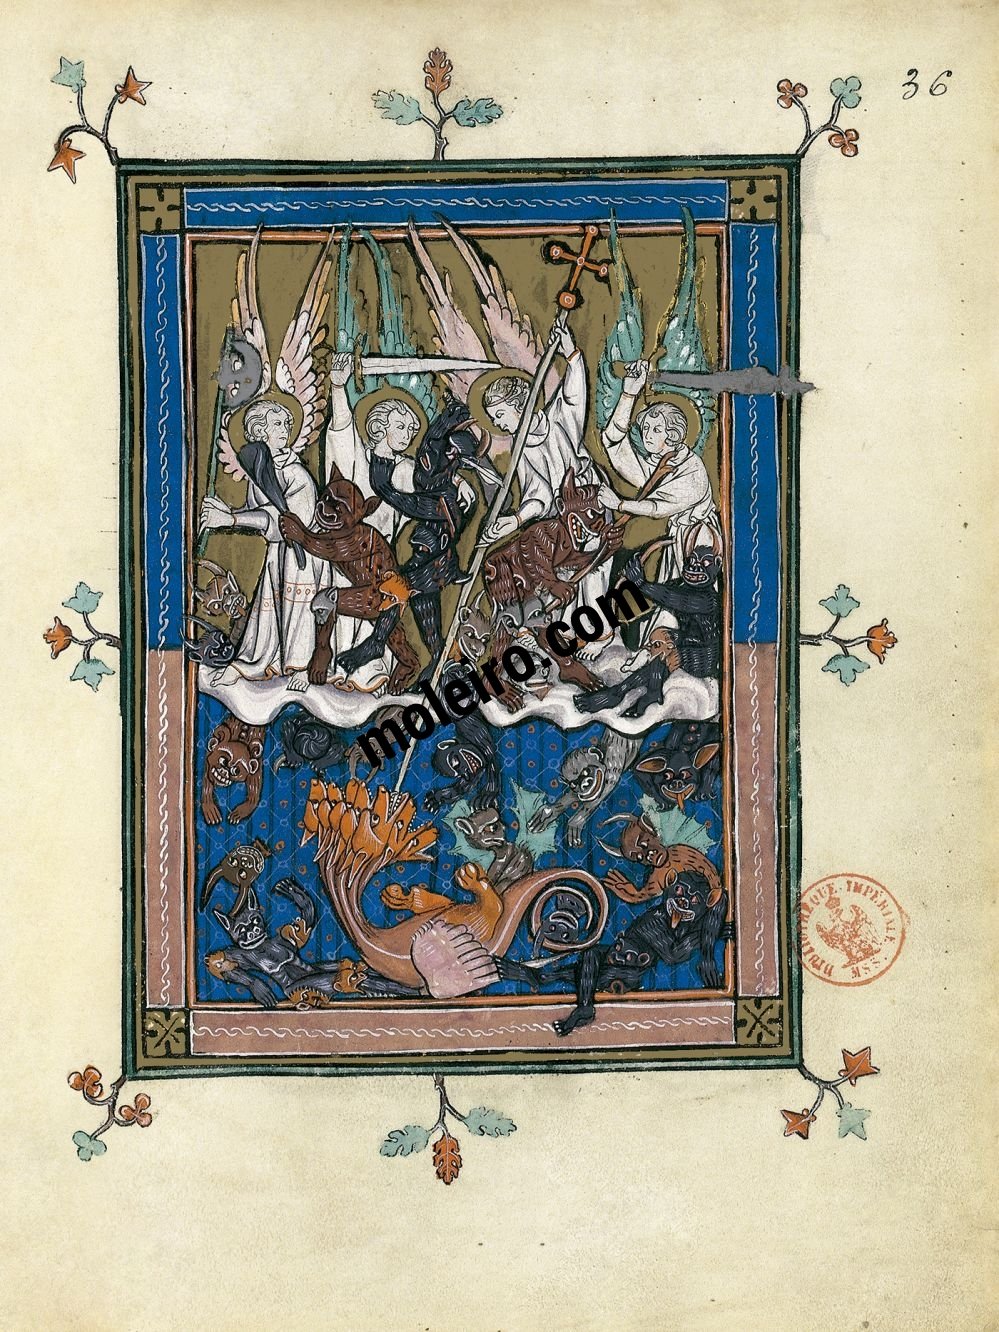 36
moleiro.com
BIBLIOTHÈQUE IMPÉRIALE
MSS.